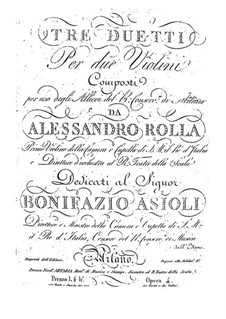 TRE DUETTI
Per due Violini
Composti
per uso degli Allievi del R. Conserv. di Milano
DA
ALESSANDRO ROLLA
Primo Violino della Camera e Capella di S. M. il Re d'Italia
e Direttor d'orchestra al R. Teatro della Scala
Dedicati al Signor
BONIFAZIO ASIOLI
Direttore e Maestro della Camera e Capella di S. M.
il Re d'Italia, Censore del R. Conserv. di Musica
dell'Autore
Milano
Opera 4